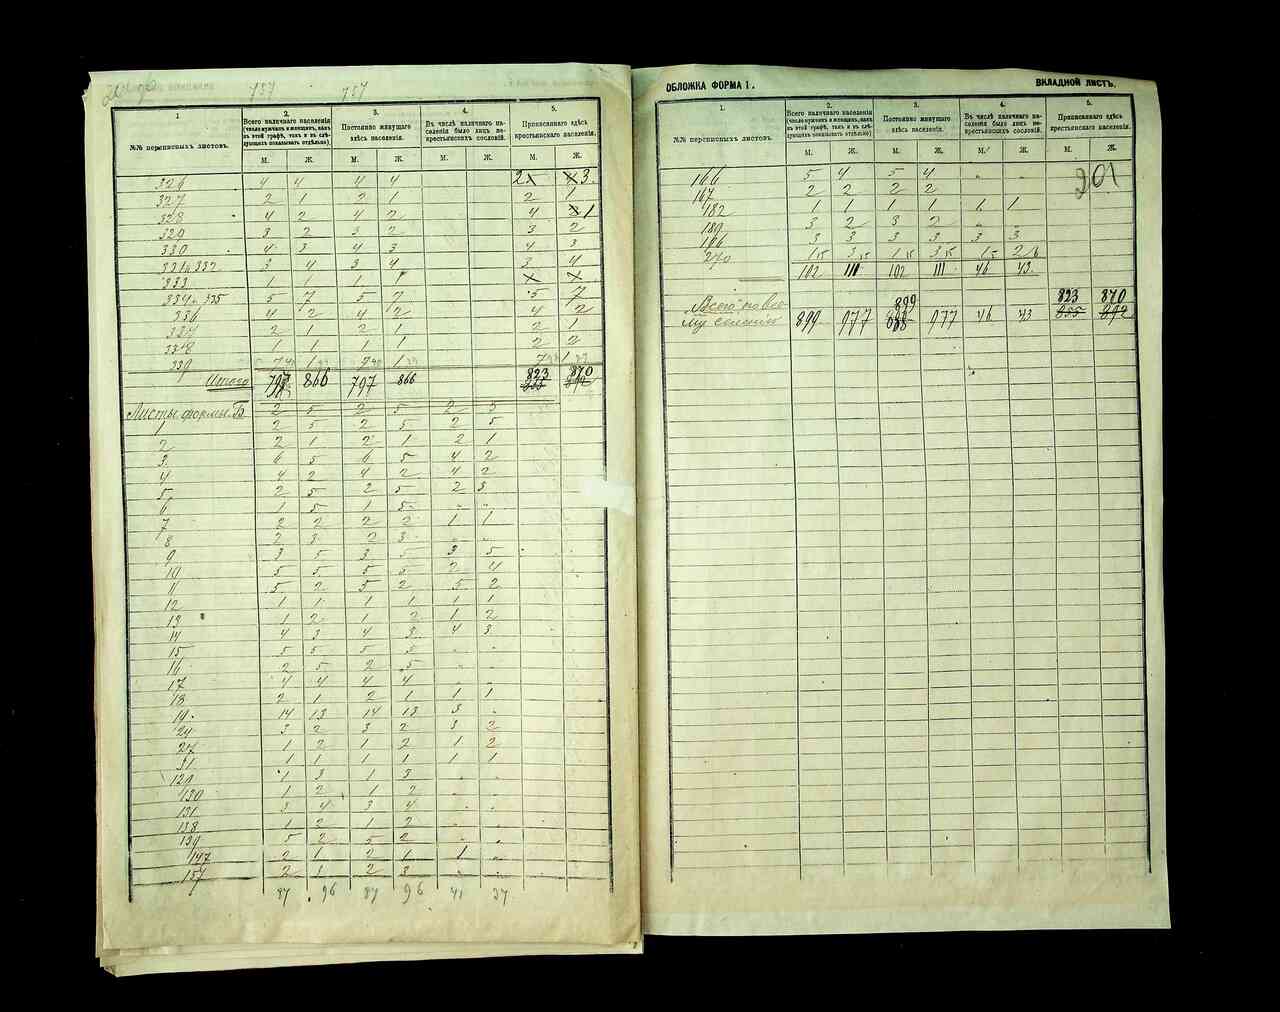 757 757
1 2. 3. 4. 5.
№№ переписныхъ листовъ.
Всего наличнаго населенія (число мужчинъ и женщинъ, какъ въ этой графѣ, такъ и въ слѣдующихъ показывать отдѣльно).
Постоянно живущаго здѣсь населенія.
Въ числѣ наличнаго населенія было лицъ некрестьянскихъ сословій.
Приписаннаго здѣсь крестьянскаго населенія.
М. Ж. М. Ж. М. Ж. М. Ж.
326 4 4 4 4 3
327 2 1 2 1 2 1
328 4 2 4 2 4 1
329 3 2 3 2 3 2
330 4 3 4 3 4 3
331 и 332 3 4 3 4 3 4
333 1 1 1 1
334 и 335 5 7 5 7 5 7
336 4 2 4 2 4 2
337 2 1 2 1 2 1
338 1 1 1 1 2 2
339
Итого 797 866 797 866 823 870
Листы формы Б 2 5 2 5 2 5
1 2 5 2 5 2 5
2 2 1 2 1 2 1
3 6 5 6 5 4 2
4 4 2 4 2 4 2
5 2 5 2 5 2 3
6 1 5 1 5 - -
7 2 2 2 2 1 1
8 2 3 2 3 - -
9 3 5 3 5 3 5
10 5 5 5 5 2 4
11 5 2 5 2 5 2
12 1 1 1 1 1 1
13 1 2 1 2 1 2
14 4 3 4 3 4 3
15 5 5 5 5 - -
16 2 5 2 5 - -
17 4 4 4 4 - -
18 2 1 2 1 1 1
19 14 13 14 13 3 -
24 3 2 3 2 3 2
27 1 2 1 2 1 2
31 1 1 1 1 1 1
129 1 3 1 3 - -
130 1 2 1 2 - -
131 3 4 3 4 - -
138 1 2 1 2 - -
139 5 2 5 2 - -
147 2 1 2 1 1 -
157 2 1 2 3 - -
87 96 87 96 41 37
ОБЛОЖКА ФОРМА I. ВКЛАДНОЙ ЛИСТЪ.
1. 2. 3. 4. 5.
№№ переписныхъ листовъ.
Всего наличнаго населенія (число мужчинъ и женщинъ, какъ въ этой графѣ, такъ и въ слѣдующихъ показывать отдѣльно).
Постоянно живущаго здѣсь населенія.
Въ числѣ наличнаго населенія было лицъ некрестьянскихъ сословій.
Приписаннаго здѣсь крестьянскаго населенія.
М. Ж. М. Ж. М. Ж. М. Ж.
166 5 4 5 4 - -
201
167 2 2 2 2
182 1 1 1 1 1 1
189 3 2 3 2 - -
196 3 3 3 3 3 3
270 1 3 1 3 1 2
102 111 102 111 46 43
Всего по все-
899 823 870
му селенію 899 977 888 977 46 43 855 892